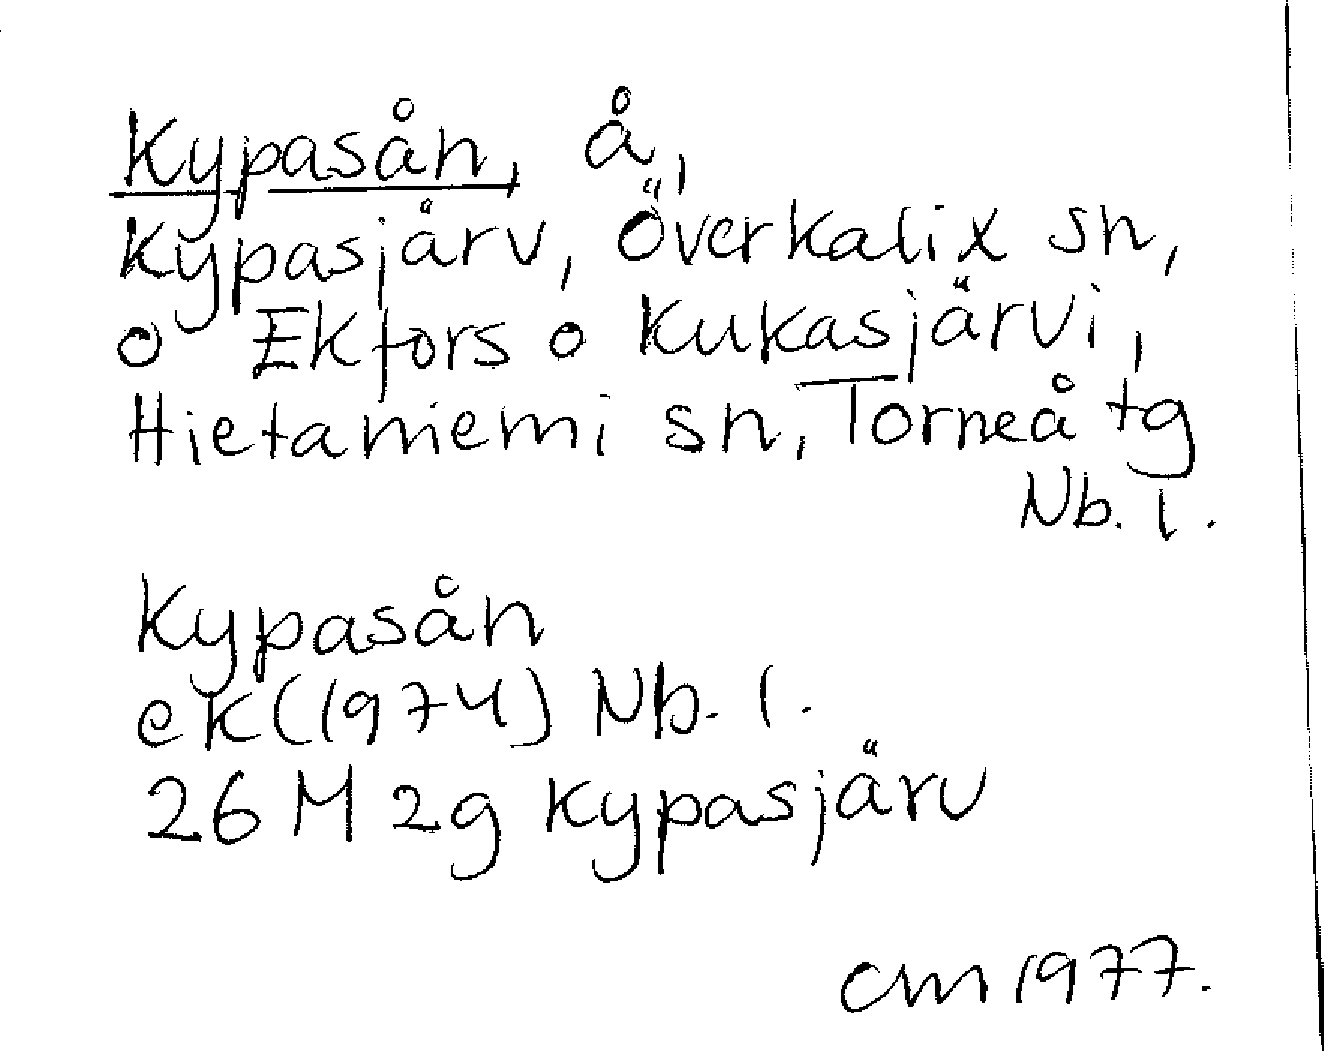 Kypasån, å,
Kypasjärv, Överkalix sn,
o Ekfors o Kukasjärvi,
Hietaniemi sn, Torneå tg
Nb. l.
Kypasån
ek (1974) Nb. l.
26 M 2g Kypasjärv
CM 1977.